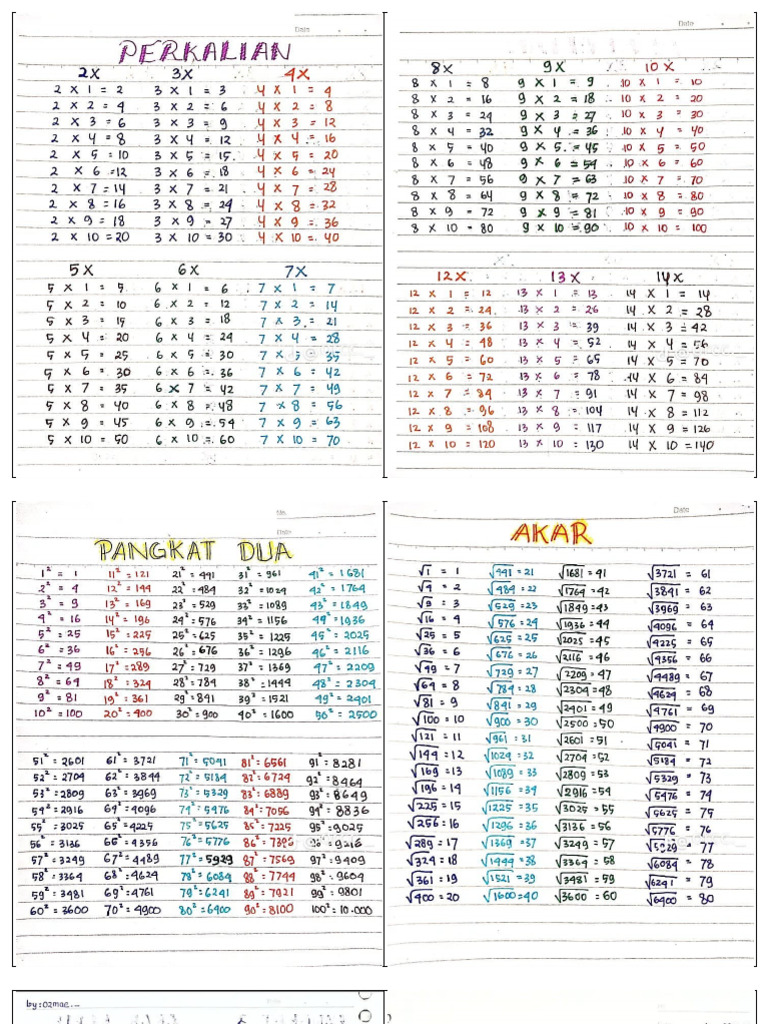 Date
PERKALIAN
2X 3X 4X
2 X 1 = 2 3 X 1 = 3 4 X 1 = 4
2 X 2 = 4 3 X 2 = 6 4 X 2 = 8
2 X 3 = 6 3 X 3 = 9 4 X 3 = 12
2 X 4 = 8 3 X 4 = 12 4 X 4 = 16
2 X 5 = 10 3 X 5 = 15 4 X 5 = 20
2 X 6 = 12 3 X 6 = 18 4 X 6 = 24
2 X 7 = 14 3 X 7 = 21 4 X 7 = 28
2 X 8 = 16 3 X 8 = 24 4 X 8 = 32
2 X 9 = 18 3 X 9 = 27 4 X 9 = 36
2 X 10 = 20 3 X 10 = 30 4 X 10 = 40
5X 6X 7X
5 X 1 = 5 6 X 1 = 6 7 X 1 = 7
5 X 2 = 10 6 X 2 = 12 7 X 2 = 14
5 X 3 = 15 6 X 3 = 18 7 X 3 = 21
5 X 4 = 20 6 X 4 = 24 7 X 4 = 28
5 X 5 = 25 6 X 5 = 30 7 X 5 = 35
5 X 6 = 30 6 X 6 = 36 7 X 6 = 42
5 X 7 = 35 6 X 7 = 42 7 X 7 = 49
5 X 8 = 40 6 X 8 = 48 7 X 8 = 56
5 X 9 = 45 6 X 9 = 54 7 X 9 = 63
5 X 10 = 50 6 X 10 = 60 7 X 10 = 70
Date
8X 9X 10X
8 X 1 = 8 9 X 1 = 9 10 X 1 = 10
8 X 2 = 16 9 X 2 = 18 10 X 2 = 20
8 X 3 = 24 9 X 3 = 27 10 X 3 = 30
8 X 4 = 32 9 X 4 = 36 10 X 4 = 40
8 X 5 = 40 9 X 5 = 45 10 X 5 = 50
8 X 6 = 48 9 X 6 = 54 10 X 6 = 60
8 X 7 = 56 9 X 7 = 63 10 X 7 = 70
8 X 8 = 64 9 X 8 = 72 10 X 8 = 80
8 X 9 = 72 9 X 9 = 81 10 X 9 = 90
8 X 10 = 80 9 X 10 = 90 10 X 10 = 100
12X 13X 14X
12 X 1 = 12 13 X 1 = 13 14 X 1 = 14
12 X 2 = 24 13 X 2 = 26 14 X 2 = 28
12 X 3 = 36 13 X 3 = 39 14 X 3 = 42
12 X 4 = 48 13 X 4 = 52 14 X 4 = 56
12 X 5 = 60 13 X 5 = 65 14 X 5 = 70
12 X 6 = 72 13 X 6 = 78 14 X 6 = 84
12 X 7 = 84 13 X 7 = 91 14 X 7 = 98
12 X 8 = 96 13 X 8 = 104 14 X 8 = 112
12 X 9 = 108 13 X 9 = 117 14 X 9 = 126
12 X 10 = 120 13 X 10 = 130 14 X 10 = 140
No.
Date
PANGKAT DUA
1² = 1 11² = 121 21² = 441 31² = 961 41² = 1681
2² = 4 12² = 144 22² = 484 32² = 1024 42² = 1764
3² = 9 13² = 169 23² = 529 33² = 1089 43² = 1849
4² = 16 14² = 196 24² = 576 34² = 1156 44² = 1936
5² = 25 15² = 225 25² = 625 35² = 1225 45² = 2025
6² = 36 16² = 256 26² = 676 36² = 1296 46² = 2116
7² = 49 17² = 289 27² = 729 37² = 1369 47² = 2209
8² = 64 18² = 324 28² = 784 38² = 1444 48² = 2304
9² = 81 19² = 361 29² = 841 39² = 1521 49² = 2401
10² = 100 20² = 400 30² = 900 40² = 1600 50² = 2500
51² = 2601 61² = 3721 71² = 5041 81² = 6561 91² = 8281
52² = 2704 62² = 3844 72² = 5184 82² = 6724 92² = 8464
53² = 2809 63² = 3969 73² = 5329 83² = 6889 93² = 8649
54² = 2916 64² = 4096 74² = 5476 84² = 7056 94² = 8836
55² = 3025 65² = 4225 75² = 5625 85² = 7225 95² = 9025
56² = 3136 66² = 4356 76² = 5776 86² = 7396 96² = 9216
57² = 3249 67² = 4489 77² = 5929 87² = 7569 97² = 9409
58² = 3364 68² = 4624 78² = 6084 88² = 7744 98² = 9604
59² = 3481 69² = 4761 79² = 6241 89² = 7921 99² = 9801
60² = 3600 70² = 4900 80² = 6400 90² = 8100 100² = 10.000
Date
AKAR
√1 = 1 √441 = 21 √1681 = 41 √3721 = 61
√4 = 2 √484 = 22 √1764 = 42 √3841 = 62
√9 = 3 √529 = 23 √1849 = 43 √3969 = 63
√16 = 4 √576 = 24 √1936 = 44 √4096 = 64
√25 = 5 √625 = 25 √2025 = 45 √4225 = 65
√36 = 6 √676 = 26 √2116 = 46 √4356 = 66
√49 = 7 √729 = 27 √2209 = 47 √4489 = 67
√64 = 8 √784 = 28 √2304 = 48 √4624 = 68
√81 = 9 √841 = 29 √2401 = 49 √4761 = 69
√100 = 10 √900 = 30 √2500 = 50 √4900 = 70
√121 = 11 √961 = 31 √2601 = 51 √5041 = 71
√144 = 12 √1024 = 32 √2704 = 52 √5184 = 72
√169 = 13 √1089 = 33 √2809 = 53 √5329 = 73
√196 = 14 √1156 = 34 √2916 = 54 √5476 = 74
√225 = 15 √1225 = 35 √3025 = 55 √5625 = 75
√256 = 16 √1296 = 36 √3136 = 56 √5776 = 76
√289 = 17 √1369 = 37 √3249 = 57 √5929 = 77
√324 = 18 √1444 = 38 √3364 = 58 √6084 = 78
√361 = 19 √1521 = 39 √3481 = 59 √6241 = 79
√400 = 20 √1600 = 40 √3600 = 60 √6400 = 80
by: 02mae...